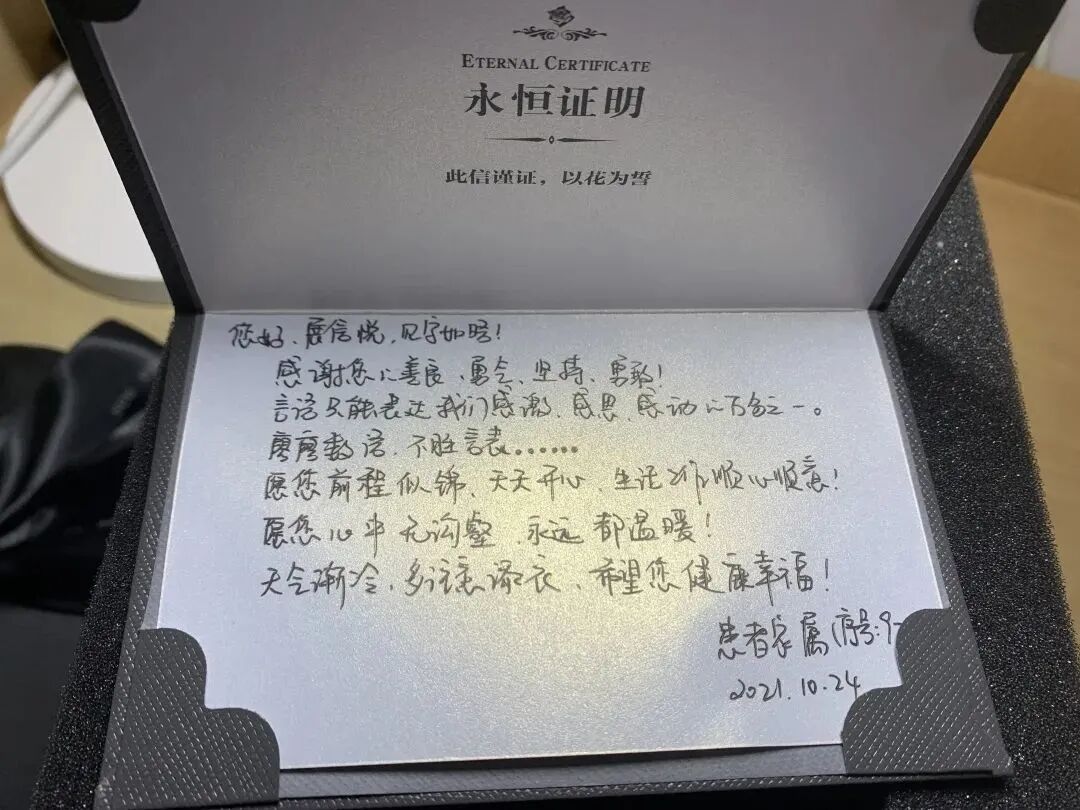 ETERNAL CERTIFICATE
永恒证明
此信谨证，以花为誓
您好、展信悦，见字如晤！
感谢您的善良、勇气、坚持、勇敢！
言语只能表达我们感激、感恩、感动的万分之一。
廖廖数语，不胜言表……
愿您前程似锦、天天开心、生活工作顺心顺意！
愿您心中无沟壑，永远都温暖！
天气渐冷，多注意添衣，希望您健康幸福！
患者家属（序号:9-
2021.10.24